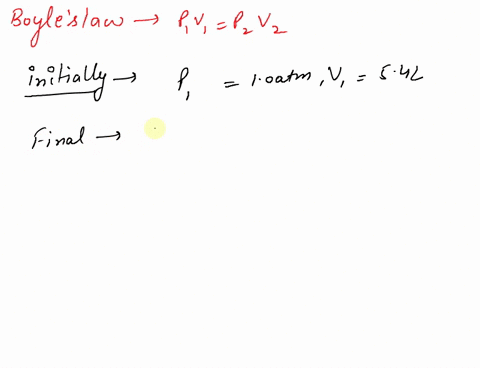 Boyle's law → P₁V₁ = P₂V₂
initially → P₁ = 1.0atm, V₁ = 5.4L
Final →